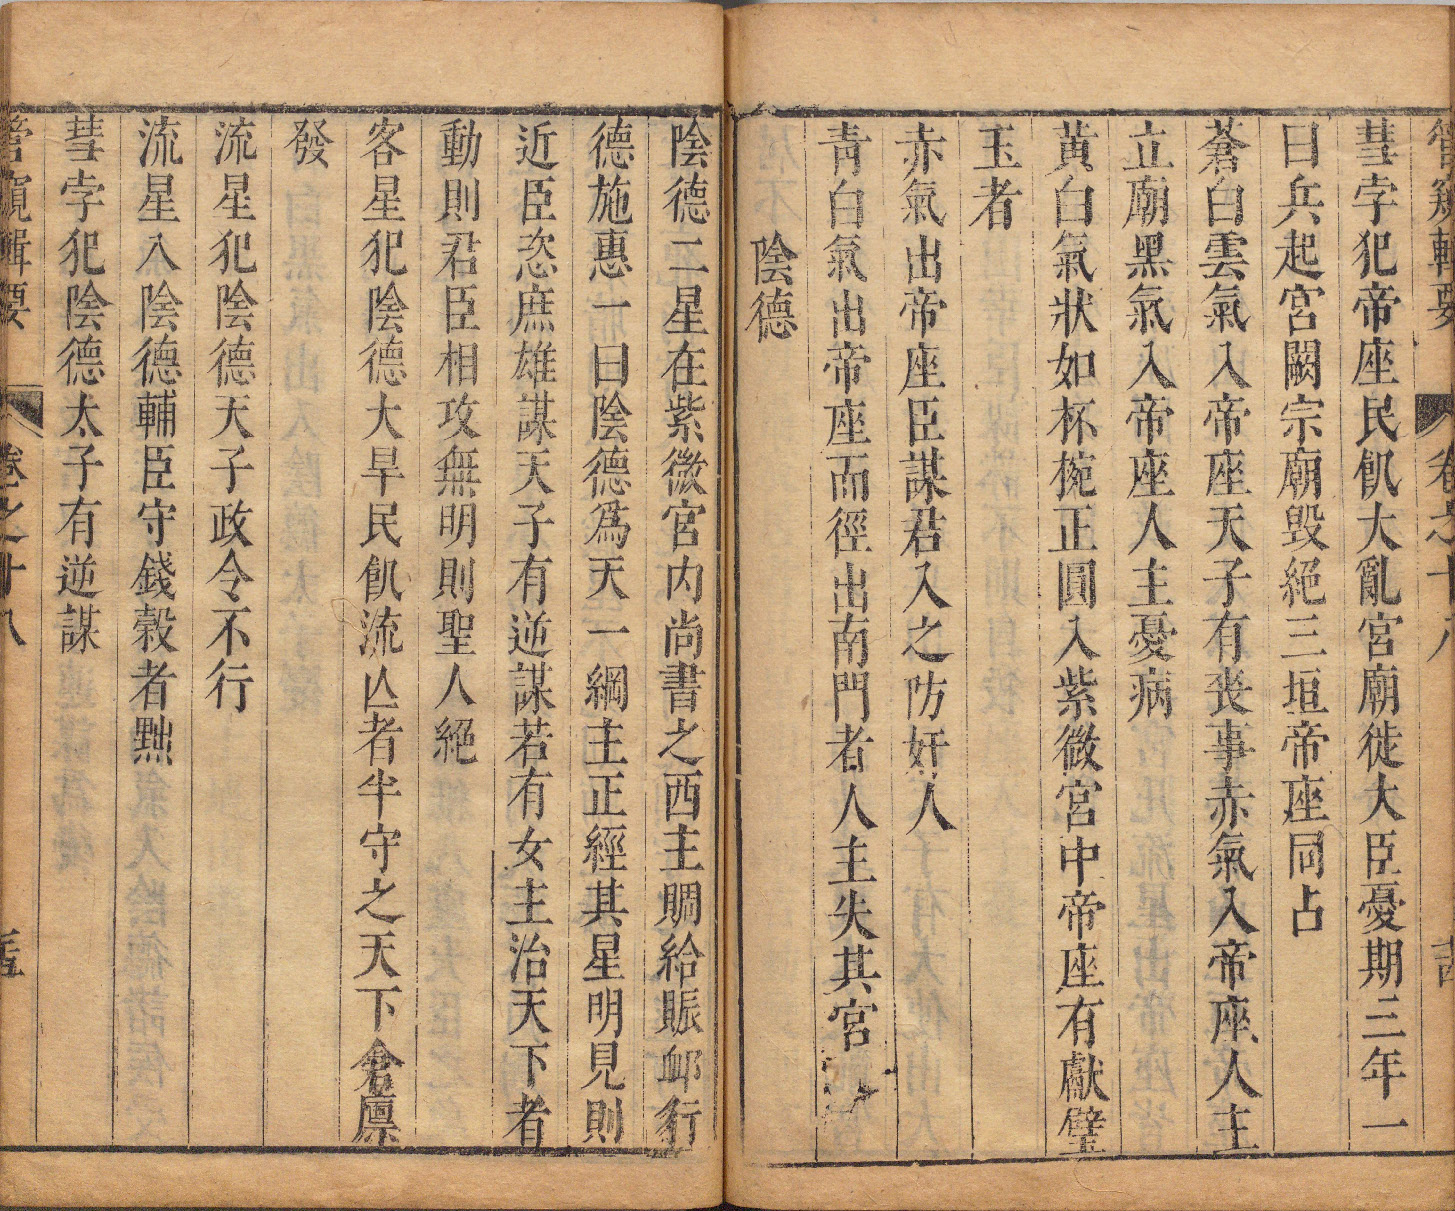 管窺輯要 卷之十八
彗孛犯帝座民飢大亂宮廟徙大臣憂期三年一
曰兵起宮闕宗廟毀絕三垣帝座同占
蒼白雲氣入帝座天子有丧事赤氣入帝座人主
立廟黑氣入帝座人主憂病
黃白氣狀如杯椀正圓入紫微宮中帝座有獻璧
玉者
赤氣出帝座臣謀君入之防奸人
青白氣出帝座而徑出南門者人主失其宮
陰德
陰德二星在紫微宮内尚書之西主賙給賑䘏行
德施惠一曰陰德爲天一綱主正經其星明見則
近臣恣庶雄謀天子有逆謀若有女主治天下者
動則君臣相攻無明則聖人絕
客星犯陰德大旱民飢流亾者半守之天下倉廪
發
流星犯陰德天子政令不行
流星入陰德輔臣守錢榖者黜
彗孛犯陰德太子有逆謀
管窺輯要 卷之十八